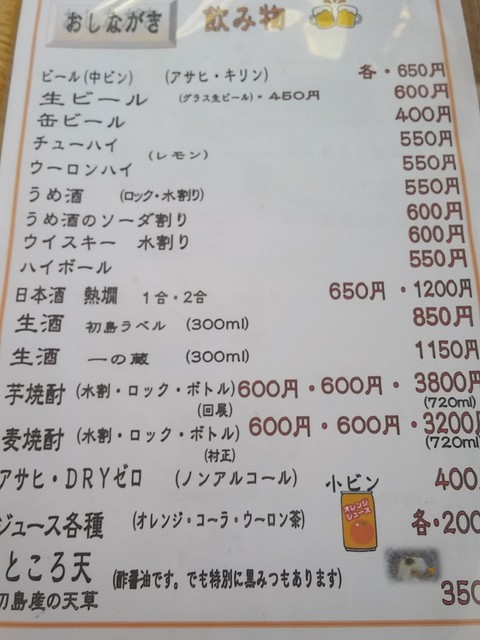 おしながき 飲み物
ビール(中ビン) (アサヒ・キリン) 各・650円
生ビール (グラス生ビール)・450円 600円
缶ビール 400円
チューハイ 550円
(レモン)
ウーロンハイ 550円
うめ酒 (ロック・水割り) 550円
うめ酒のソーダ割り 600円
ウイスキー 水割り 600円
ハイボール 550円
日本酒 熱燗 1合・2合 650円・1200円
生酒 初島ラベル (300ml) 850円
生酒 一の蔵 (300ml) 1150円
芋焼酎 (水割・ロック・ボトル) 600円・600円・3800円
(回展) (720ml)
麦焼酎 (水割・ロック・ボトル) 600円・600円・3200円
(村正) (720ml)
アサヒ・DRYゼロ (ノンアルコール) 小ビン 400
オレンジ
ジュース
ジュース各種 (オレンジ・コーラ・ウーロン茶) 各・200
ところ天 (酢醤油です。でも特別に黒みつもあります) 350
初島産の天草